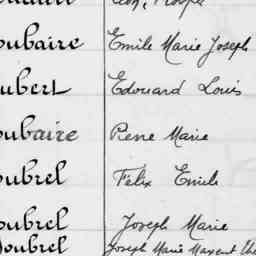 oubaire Emile Marie Joseph
ubert Edouard Louis
oubaire Pierre Marie
oubrel Felix Emile
oubrel Joseph Marie
oubrel Joseph Marie Maxent